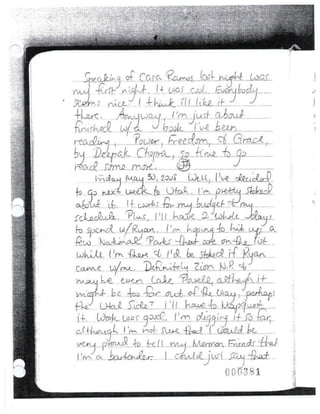 Speaking of Casa Ramos last night was
my first night. It was cool. Everybody
seems nice & I think i'll like it
there. Anyway, I'm just about
finished w/a book I've been
reading, Power, Freedom, & Grace,
by Deepak Chopra, so time to go
read some more.
Friday May 30, 2008 Well, I've decided
to go next week to Utah. I'm pretty stoked
about it. It works for my budget & my
schedule. Plus, I'll have 2 whole days
to spend w/Ryan. I'm hoping to hit up a
few National Parks that are on the list
while I'm there & I'd be stoked if Ryan
came w/me. Definitly Zion N.P. &
maybe even Lake Powell, although it
might be too far out of the way, perhaps
the Utah Side? I'll have to Mapquest
it. Work was good. I'm digging it so far,
although I'm not sure that I would be
very proud to tell my Mormon Friends that
I'm a bartender. I could just say that
000381